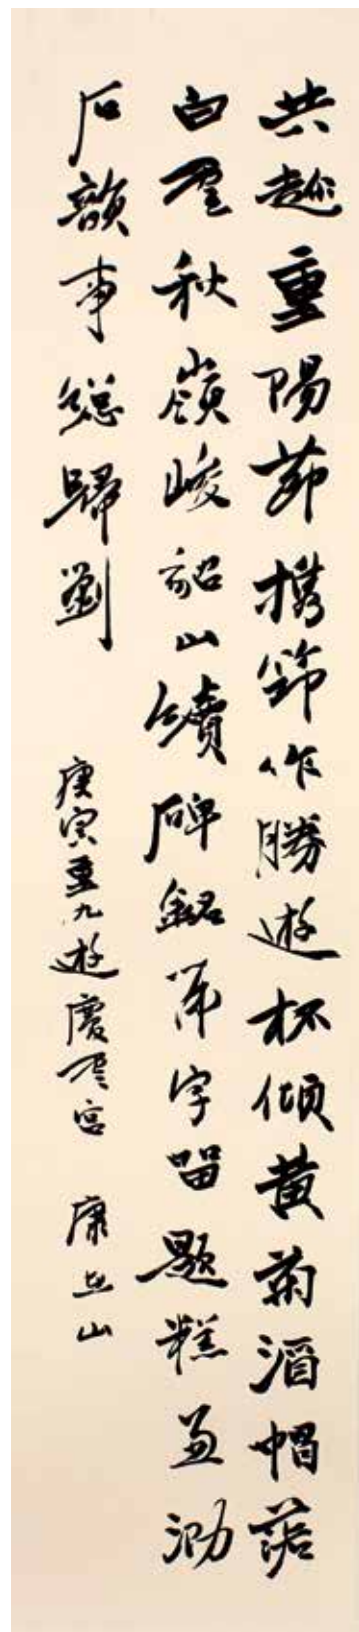 共趁重陽節携筇作勝遊杯傾黄菊酒帽落
白雲秋嶺峻韶山續碑銘茅字留題糕泐
石韻事總歸劉 庚寅重九遊慶雲宫 康山